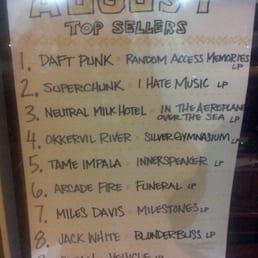 AUGUST
TOP SELLERS
1. DAFT PUNK - RANDOM ACCESS MEMORIES LP
2. SUPERCHUNK - I HATE MUSIC LP
3. NEUTRAL MILK HOTEL - IN THE AEROPLANE
OVER THE SEA LP
4. OKKERVIL RIVER - SILVER GYMNASIUM LP
5. TAME IMPALA - INNERSPEAKER LP
6. ARCADE FIRE - FUNERAL LP
7. MILES DAVIS - MILESTONES LP
8. JACK WHITE - BLUNDERBUSS LP
VEHICLE